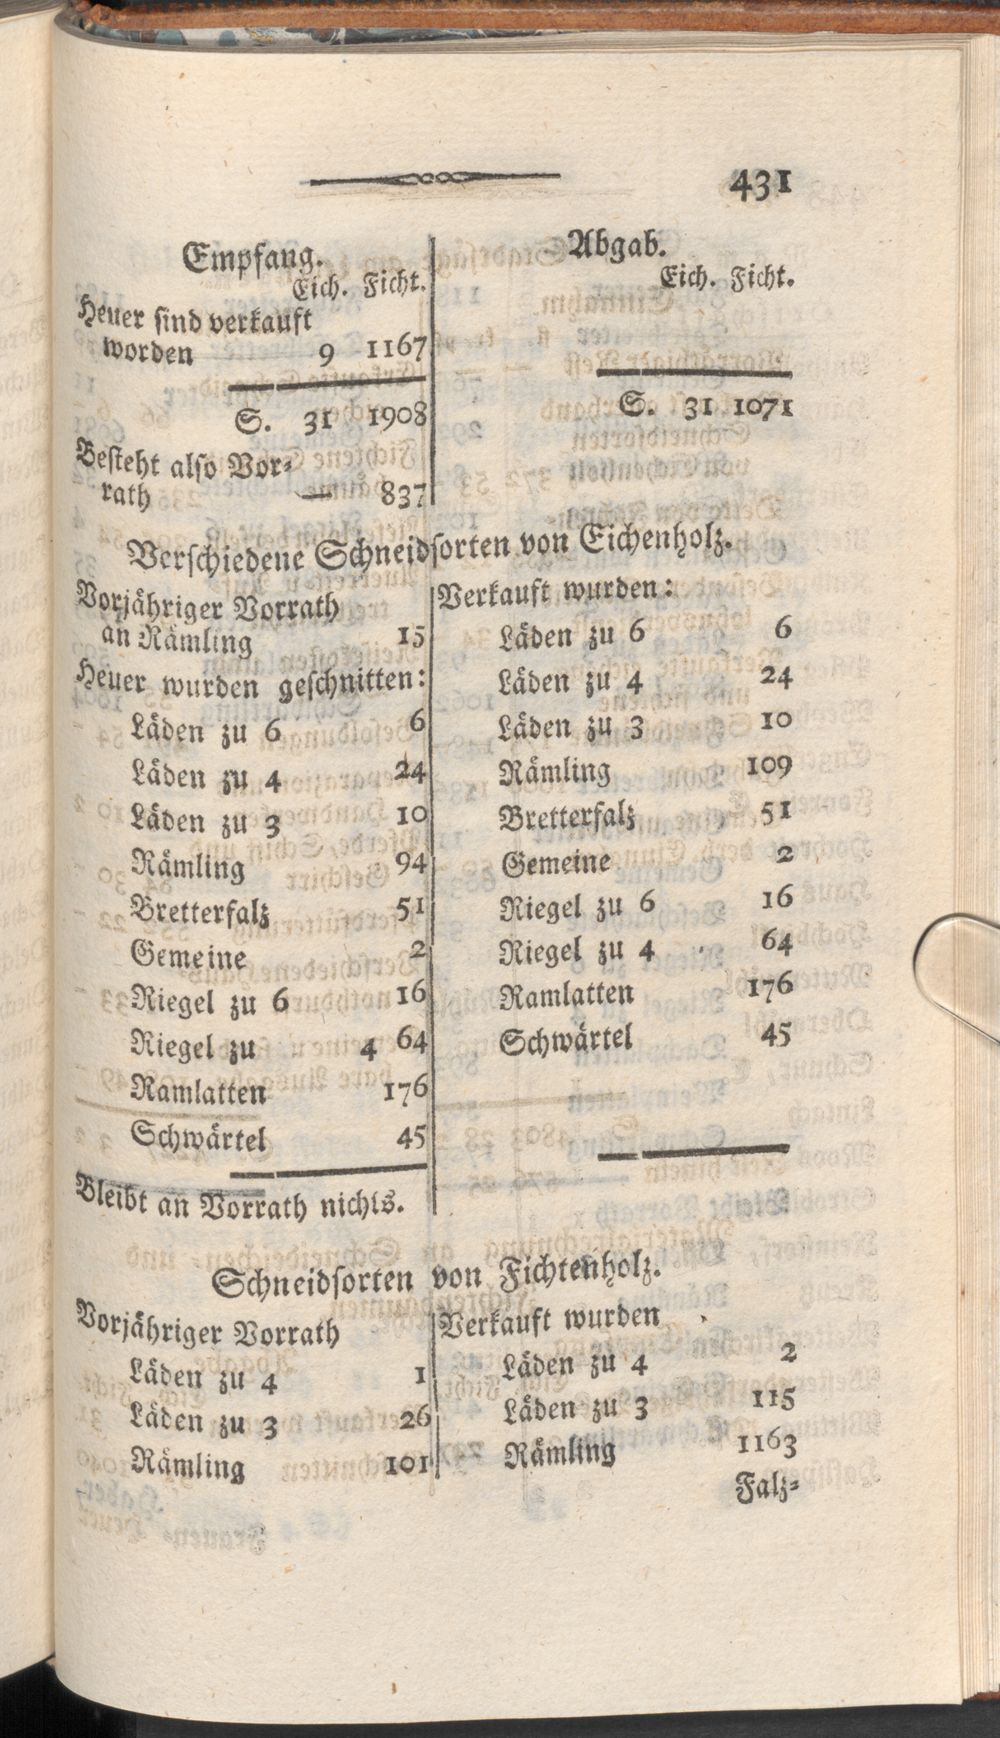 431
Empfang.
Eich. Ficht.
Heuer sind verkauft
worden 9 1167
S. 31 1908
Besteht also Vor-
rath — 837
Abgab.
Eich. Ficht.
S. 31 1071
Verschiedene Schneidsorten von Eichenholz.
Vorjähriger Vorrath
an Rämling 15
Heuer wurden geschnitten:
Läden zu 6 6
Läden zu 4 24
Läden zu 3 10
Rämling 94
Bretterfalz 51
Gemeine 2
Riegel zu 6 16
Riegel zu 4 64
Ramlatten 176
Schwärtel 45
Bleibt an Vorrath nichts.
Verkauft wurden:
Läden zu 6 6
Läden zu 4 24
Läden zu 3 10
Rämling 109
Bretterfalz 51
Gemeine 2
Riegel zu 6 16
Riegel zu 4 64
Ramlatten 176
Schwärtel 45
Schneidsorten von Fichtenholz.
Vorjähriger Vorrath
Läden zu 4 1
Läden zu 3 26
Rämling 101
Verkauft wurden
Läden zu 4 2
Läden zu 3 115
Rämling 1163
Falz-